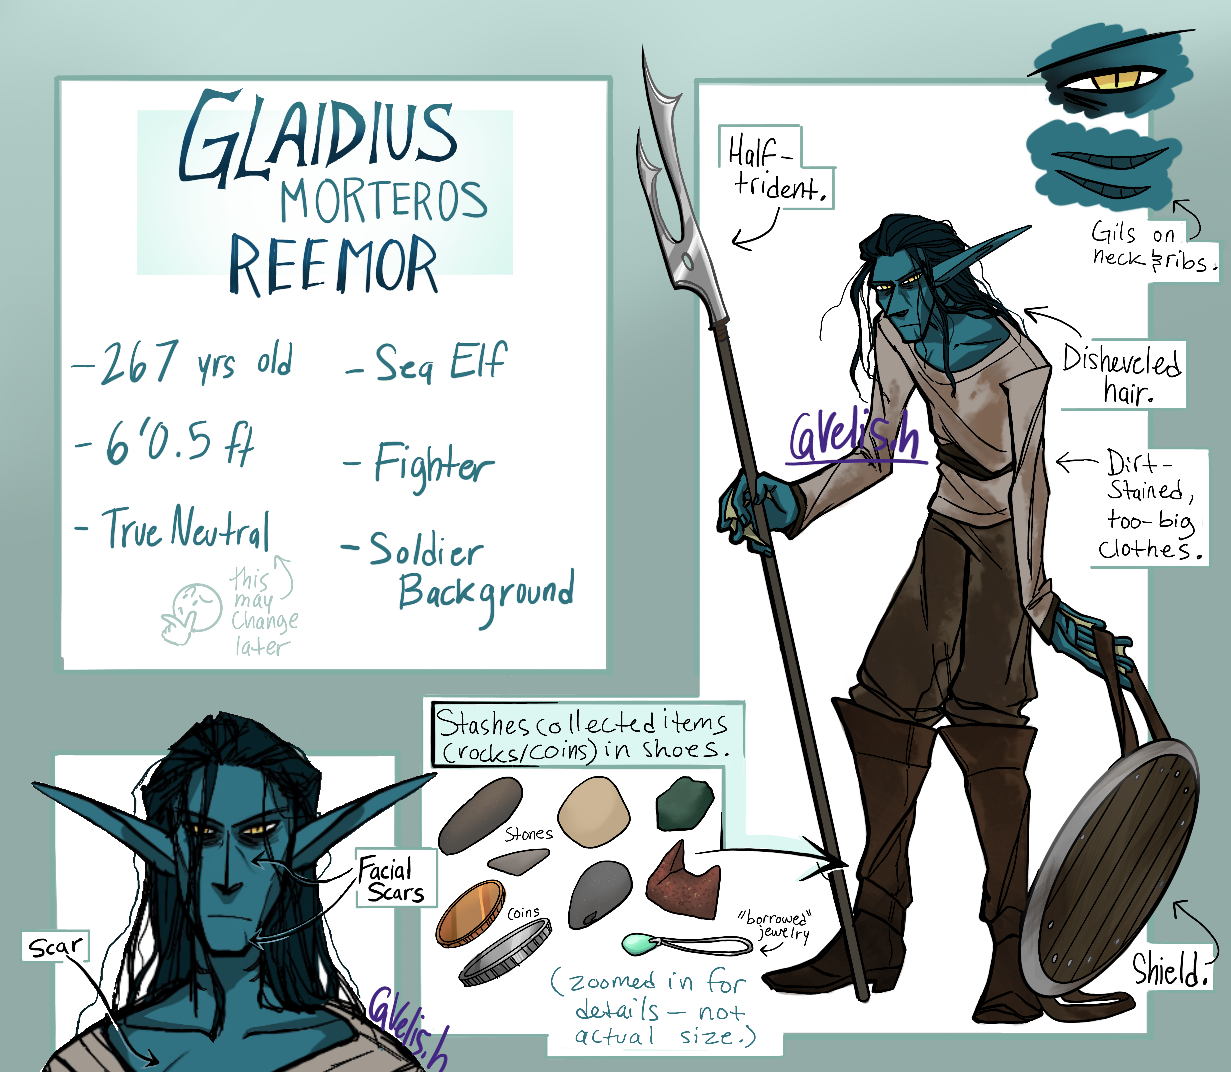 GLAIDIUS
MORTEROS
REEMOR
- 267 yrs old
- 6'0.5 ft
- True Neutral
this
may
change
later
- Sea Elf
- Fighter
- Soldier
Background
Half-
trident.
Gils on
neck & ribs.
Disheveled
hair.
Dirt-
Stained,
too-big
clothes.
@velis.h
Shield.
Stashes collected items
(rocks/coins) in shoes.
Stones
Coins
"borrowed"
jewelry
(zoomed in for
details - not
actual size.)
Facial
Scars
Scar
@velis.h